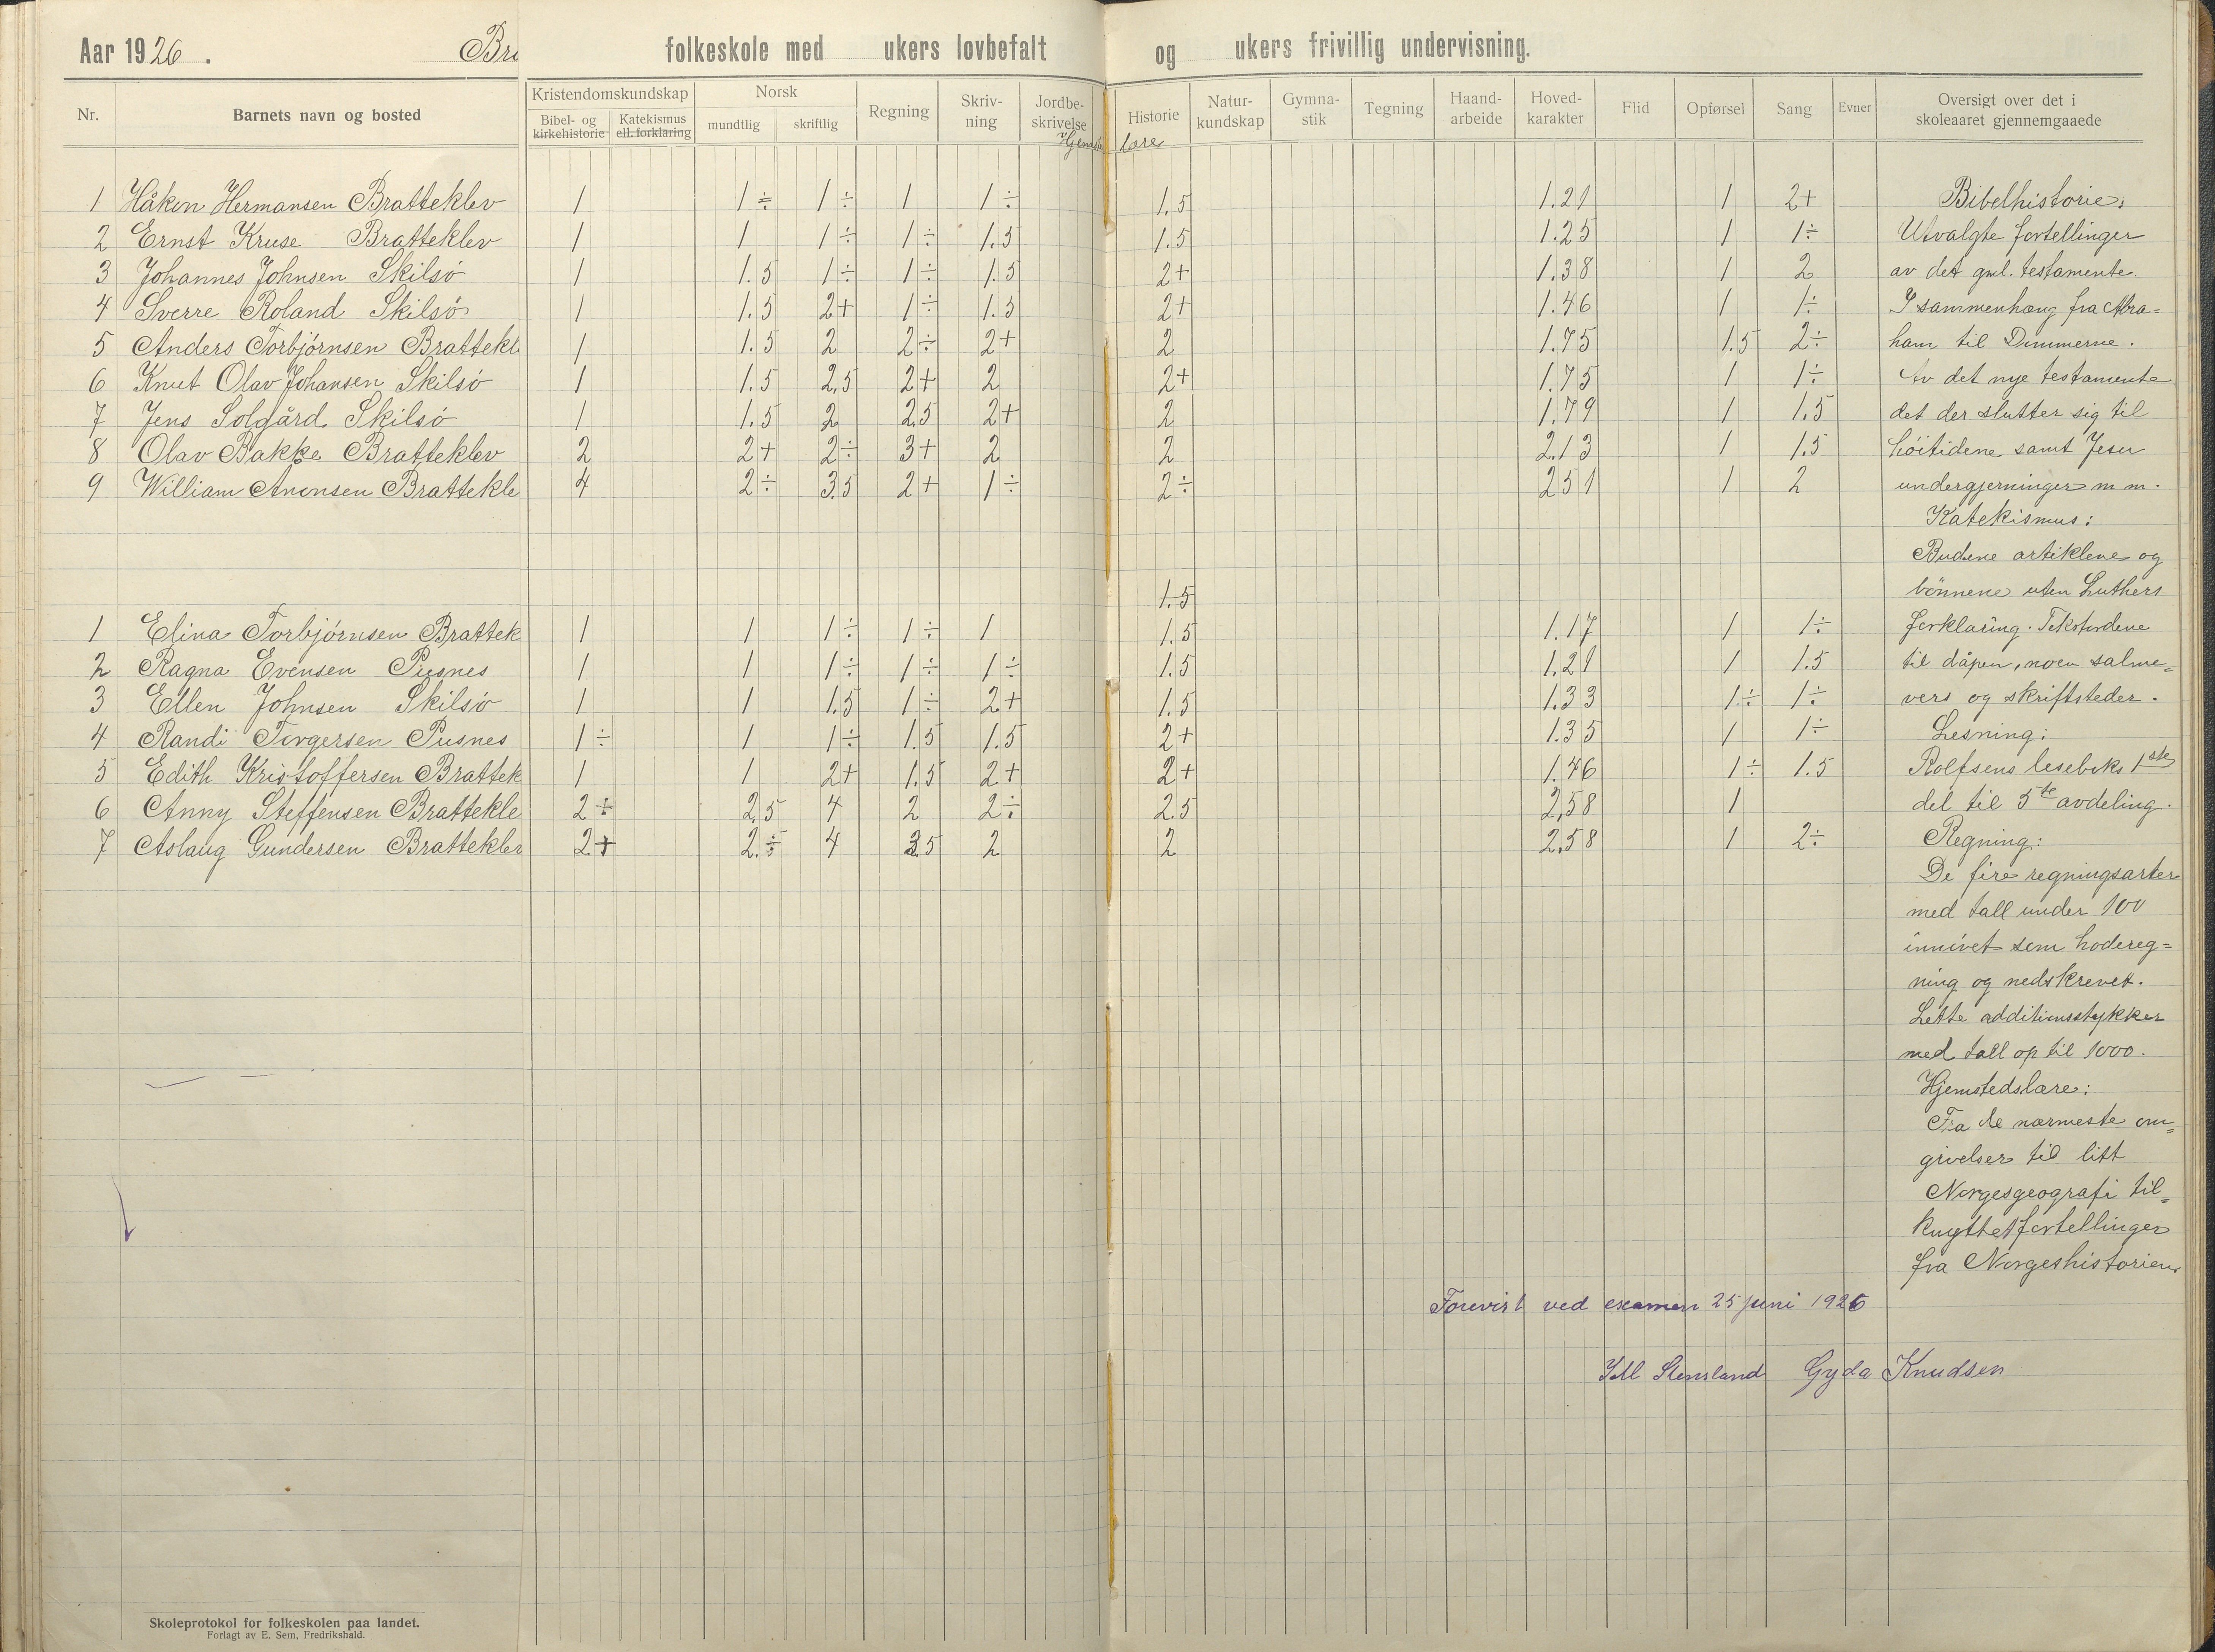 Aar 1926. Bra folkeskole med ukers lovbefalt og ukers frivillig undervisning.
Nr. Barnets navn og bosted Kristendomskundskap Norsk Regning Skriv-ning Jordbe-skrivelse Historie Natur-kundskap Gymna-stik Tegning Haand-arbeide Hoved-karakter Flid Opførsel Sang Evner Oversigt over det i skoleaaret gjennemgaaede
Bibel- og kirkehistorie Katekismus ell. forklaring mundtlig skriftlig
lære
1 Håkon Hermansen Bratteklev 1 1÷ 1÷ 1 1÷ 1.5 1.21 1 2+ Bibelhistorie:
2 Ernst Kruse Bratteklev 1 1 1÷ 1÷ 1.5 1.5 1.25 1 1÷ Utvalgte fortellinger
3 Johannes Johnsen Skilsö 1 1.5 1÷ 1÷ 1.5 2+ 1.38 1 2 av det gml. testamente.
4 Sverre Roland Skilsö 1 1.5 2+ 1÷ 1.5 2+ 1.46 1 1÷ I sammenhæng fra Abra=
5 Anders Torbjörnsen Brattekl 1 1.5 2 2÷ 2+ 2 1.75 1.5 2÷ ham til Dommerne.
6 Knut Olav Johansen Skilsö 1 1.5 2.5 2+ 2 2+ 1.75 1 1÷ Av det nye testamente
7 Jens Solgård Skilsö 1 1.5 2 2.5 2+ 2 1.79 1 1.5 det der slutter sig til
8 Olav Bakke Bratteklev 2 2+ 2÷ 3+ 2 2 2.13 1 1.5 höitidene samt Jesu
9 William Anonsen Brattekle 4 2÷ 3.5 2+ 1÷ 2÷ 251 1 2 undergjerninger m m.
Katekismus:
Budene artiklene og
1.5 bönnene uten Luthers
1 Elina Torbjörnsen Brattek 1 1 1÷ 1÷ 1 1.5 1.17 1 1÷ forklaring. Tekstordene
2 Ragna Evensen Pusnes 1 1 1÷ 1÷ 1÷ 1.5 1.21 1 1.5 til dåpen, noen salme=
3 Ellen Johnsen Skilsö 1 1 1.5 1÷ 2+ 1.5 1.33 1÷ 1÷ vers og skriftsteder.
4 Randi Torgersen Pusnes 1÷ 1 1÷ 1.5 1.5 2+ 1.35 1 1÷ Lesning:
5 Edith Kristoffersen Brattek 1 1 2+ 1.5 2+ 2+ 1.46 1÷ 1.5 Rolfsens leseboks 1ste
6 Anny Steffensen Brattekle 2÷ 2,5 4 2 2÷ 2.5 2,58 1 del til 5te avdeling.
7 Aslaug Gundersen Bratteklev 2+ 2.÷ 4 3.5 2 2 2,58 1 2÷ Regning:
De fire regningsarter
med tall under 100
innövet som hodereg=
ning og nedskrevet.
Lette additionsstykker
med tall op til 1000.
Hjemstedslære:
Fra de nærmeste om=
givelser til litt
Norgesgeografi til=
knyttet fortellinger
fra Norgeshistorien.
Forevist ved examen 25 juni 1926
Stensland Gyda Knudsen
Skoleprotokol for folkeskolen paa landet.
Forlagt av E. Sem, Fredrikshald.